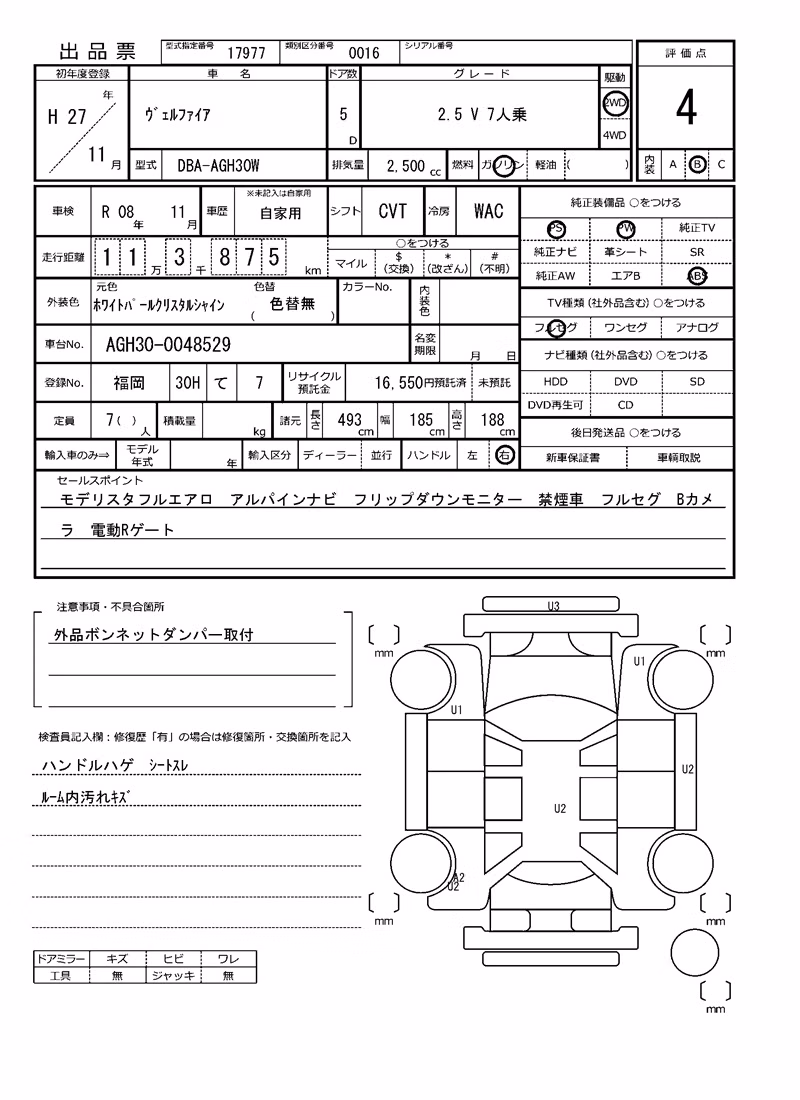 出品票 型式指定番号 17977 類別区分番号 0016 シリアル番号
評価点
初年度登録 車名 ドア数 グレード 駆動
H 27 年 ヴェルファイア 5 D 2.5 V 7人乗 2WD 4
11 月 4WD
型式 DBA-AGH30W 排気量 2,500 cc 燃料 ガソリン 軽油 ( ) 内装 A B C
車検 R 08 年 11 月 車歴 ※未記入は自家用 自家用 シフト CVT 冷房 WAC 純正装備品 ○をつける
PS PW 純正TV
走行距離 1 1 万 3 千 8 7 5 km ○をつける マイル $ (交換) * (改ざん) # (不明)
純正ナビ 革シート SR
純正AW エアB ABS
外装色 元色 ホワイトパールクリスタルシャイン 色替 ( 色替無 ) カラーNo. 内装色
TV種類(社外品含む) ○をつける
フルセグ ワンセグ アナログ
車台No. AGH30-0048529 名変期限 月 日
ナビ種類(社外品含む) ○をつける
登録No. 福岡 30H て 7 リサイクル預託金 16,550円預託済 未預託
HDD DVD SD
DVD再生可 CD
定員 7( ) 人 積載量 kg 諸元 長さ 493 cm 幅 185 cm 高さ 188 cm
後日発送品 ○をつける
輸入車のみ⇒ モデル年式 年 輸入区分 ディーラー 並行 ハンドル 左 右
新車保証書 車輌取説
セールスポイント
モデリスタフルエアロ アルパインナビ フリップダウンモニター 禁煙車 フルセグ Bカメ
ラ 電動Rゲート
注意事項・不具合箇所
外品ボンネットダンパー取付
検査員記入欄:修復歴「有」の場合は修復箇所・交換箇所を記入
ハンドルハゲ シートスレ
ルーム内汚れキズ
ドアミラー キズ ヒビ ワレ
工具 無 ジャッキ 無
U3
mm mm
U1
U1
U2
U2
A2
U2
mm mm
mm